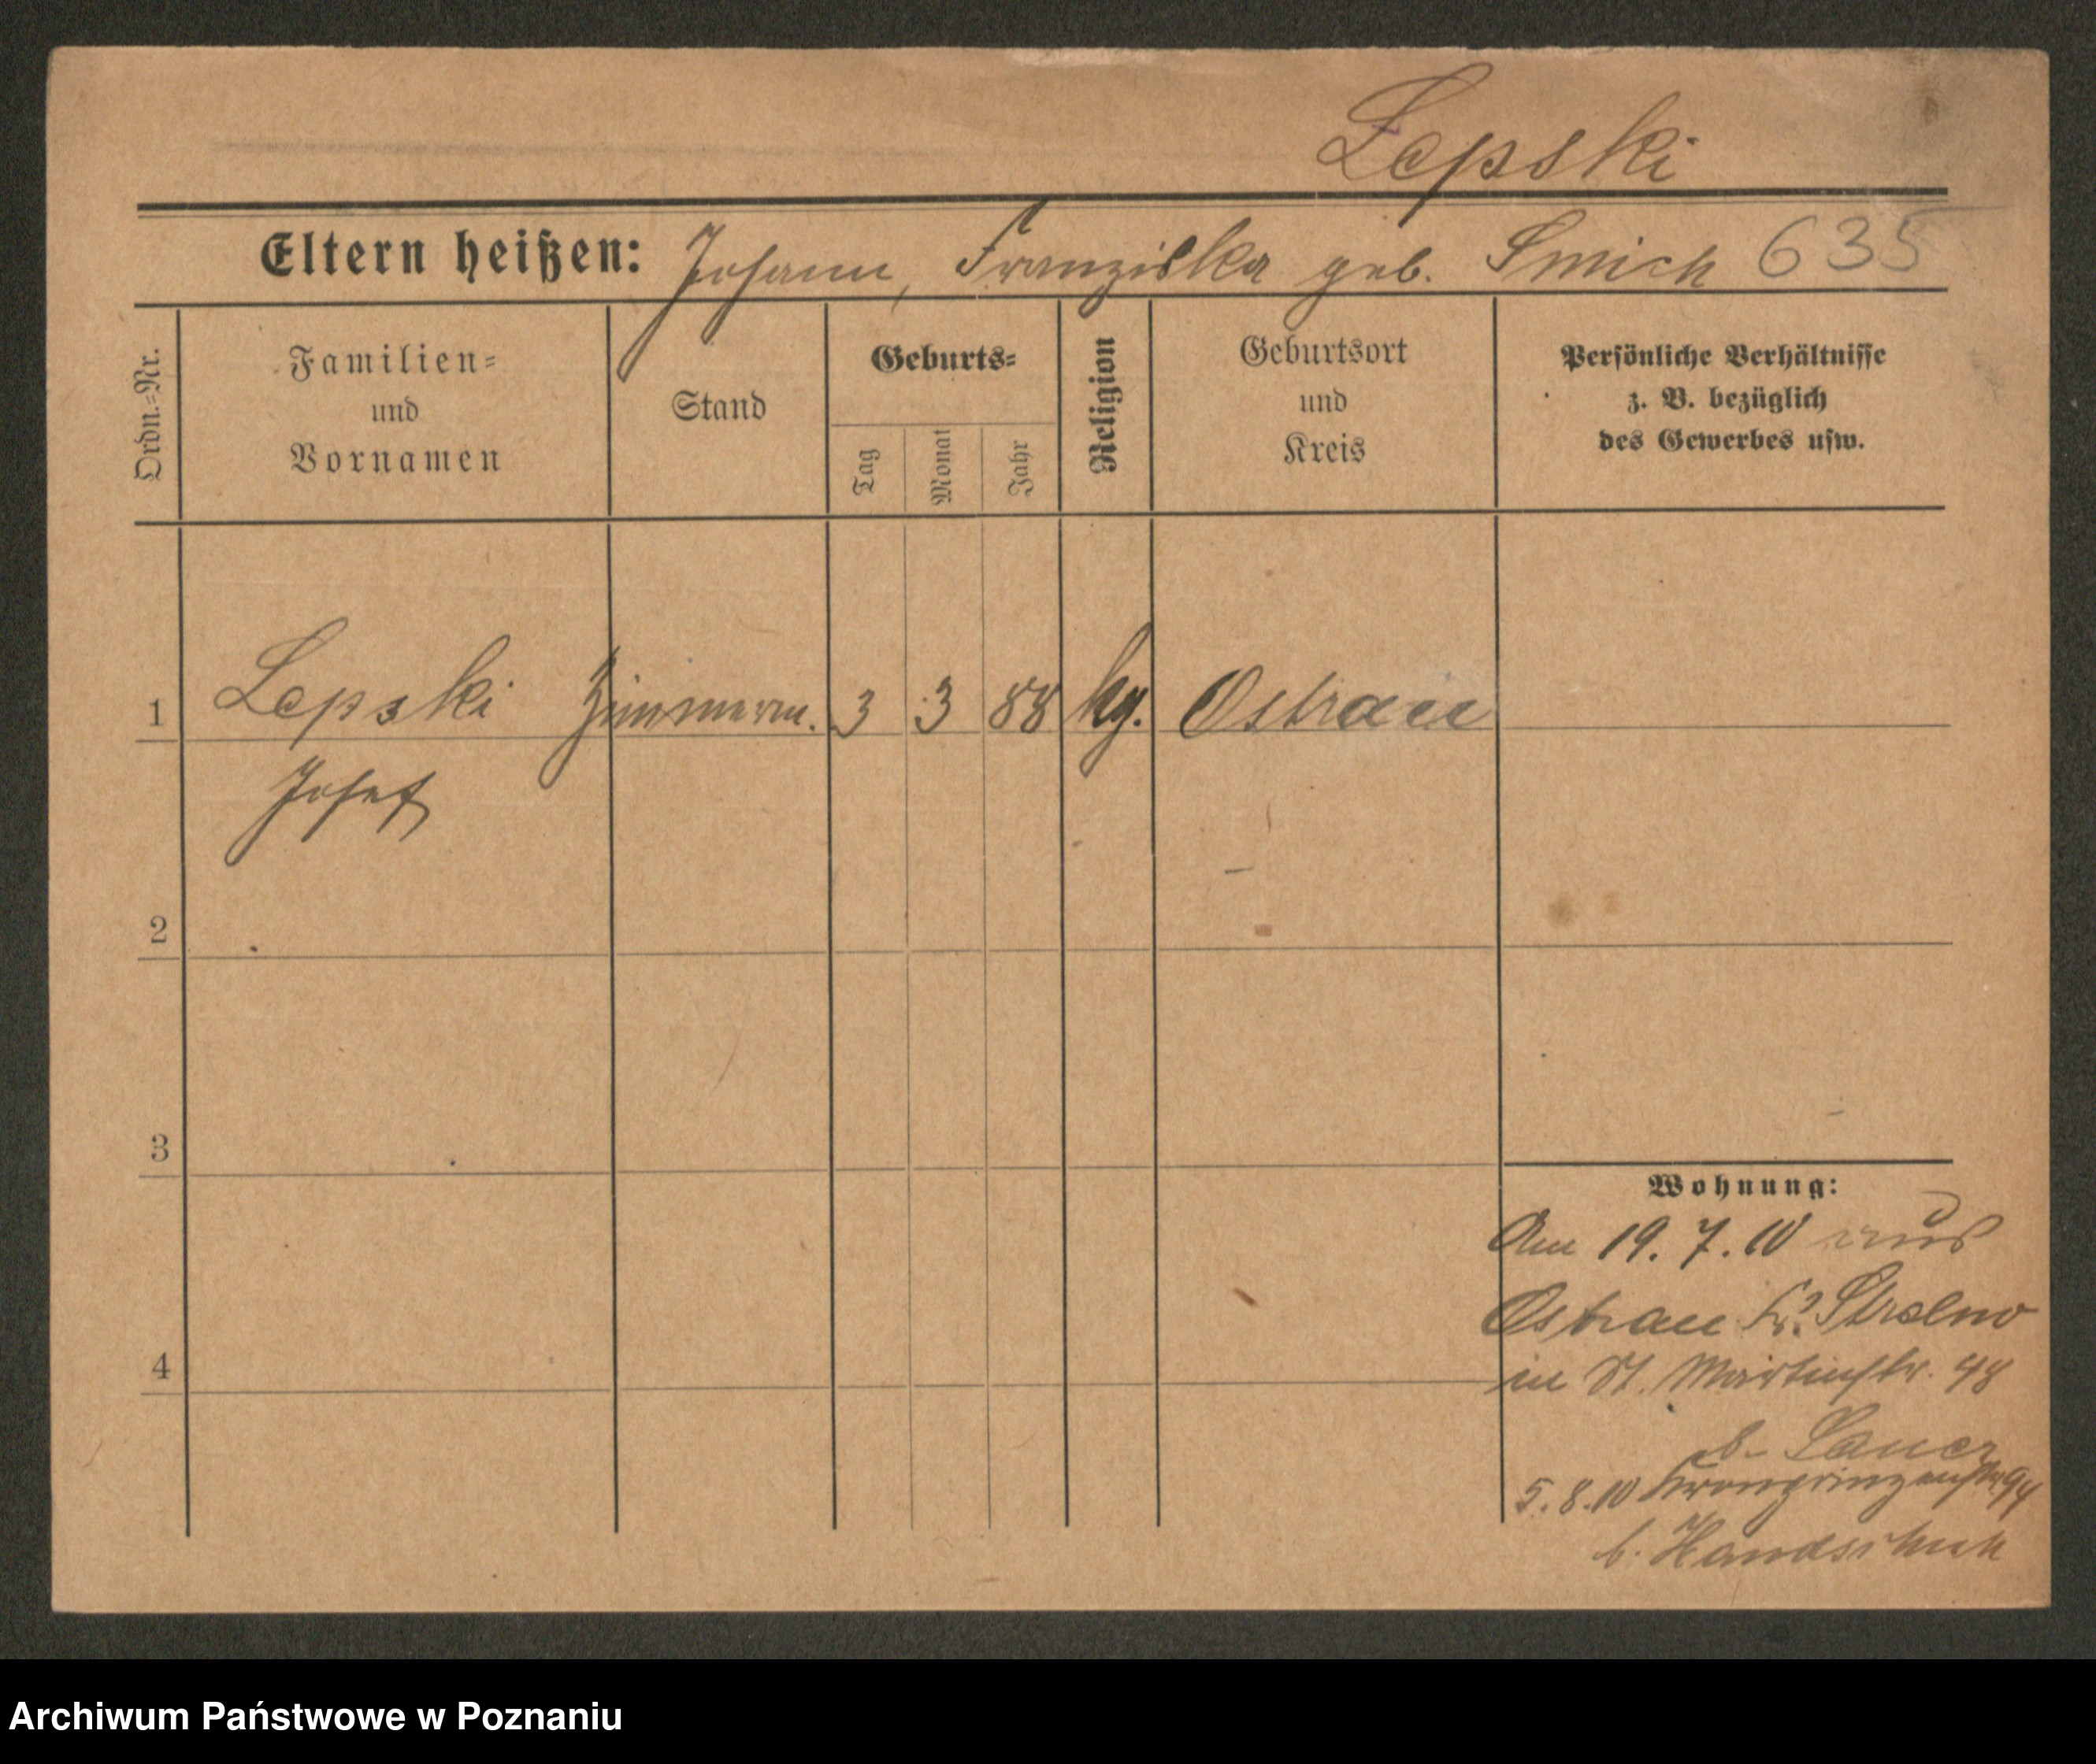 Lepski
Eltern heißen: Johann, Franziska geb. Smich 635
Ordn.-Nr.
Familien-
und
Vornamen
Stand
Geburts-
Tag
Monat
Jahr
Religion
Geburtsort
und
Kreis
Persönliche Verhältnisse
z. B. bezüglich
des Gewerbes usw.
1 Lepski Zimmerm. 3 3 88 kg. Ostrau
Josef
2
3
4
Wohnung:
Am 19. 7. 10 aus
Ostrau Kr. Strelno
in St. Martinstr. 48
b. Lauer
5. 8. 10 Kronprinzenstr 94
b. Handschuh
Archiwum Państwowe w Poznaniu